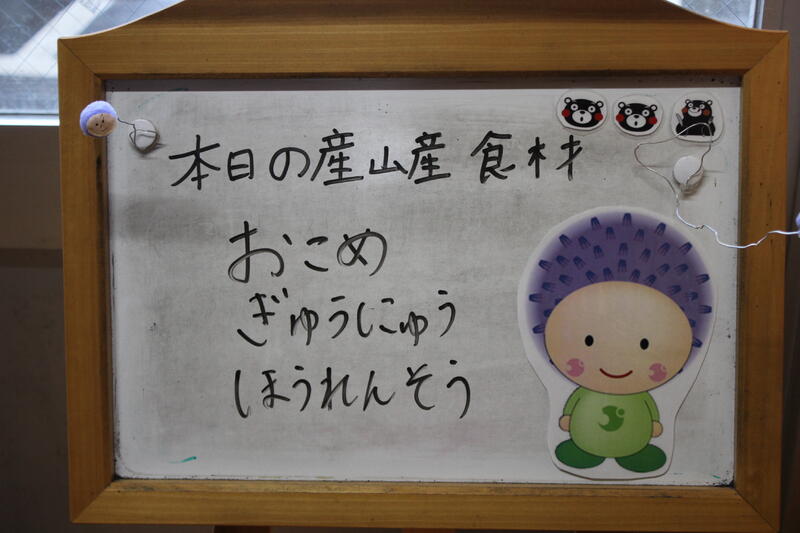 本日の産山産食材
おこめ
ぎゅうにゅう
ほうれんそう